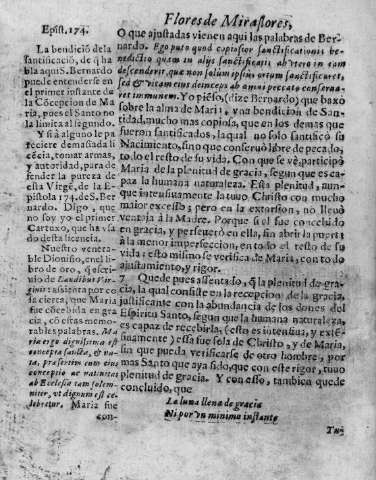 Flores de Miraflores,
Epist. 174.
La bendició de la
santificació, de q ha
bla aqui S. Bernardo
puede entenderse en
el primer instante de
la Cõcepcion de Ma
ria, pues el Santo no
la limita al segundo.
Y si à alguno le pa
reciere demasiada li
cẽcia, tomar armas,
y autoridad, para de
fender la pureza de
esta Virgẽ, de la E-
pistola 174. de S. Ber
nardo. Digo, que
no soy yo el primer
Cartuxo, que ha vsa
do desta licencia.
Nuestro venera-
ble Dionisio, en el li
bro de oro, q escri-
uio de Laudibus Vir-
ginis: assienta por co
sa cierta, que Maria
fue cõcebida en gra
cia, cõ estas memo-
rables palabras. Ma
ria ergo dignissima est
concepta sancta, & na-
ta, præsertim cum eius
conceptio ac natiuitas
ab Ecclesia tam solem-
niter, vt dignum est ce-
lebretur, Maria fue
con-
O que ajustadas vienen aqui las palabras de Ber-
nardo. Ego puto quod copiosior sanctificationis be-
nedictio quam in alijs sanctificati ab vtero in eam
descenderit, quæ non solum ipsius ortum sanctificaret,
sed & vitam eius deinceps ab omni peccato conserua-
ret immunem. Yo piẽso, (dize Bernardo) que baxó
sobre la alma de Maria, vna bendicion de San-
tidad, mucho mas copiosa, que en los demas que
fueron santificados, la qual no solo santificó su
Nacimiento, sino que conseruò libre de pecado,
todo el resto de su vida. Con que se vè, participò
Maria de la plenitud de gracia, segun que es ca-
paz la humana naturaleza. Esta plenitud, aun-
que intensiuamente la tuuo Christo con mucho
maior excesso; pero en la extension, no lleuó
ventaja á la Madre. Porque si èl fue concebido
en gracia, y perseuerò en ella, sin abrir la puerta
à la menor imperfeccion, en todo el resto de su
vida; esto mismo se verifica de Maria, con todo
ajustamiento, y rigor.
7 Quede pues assentado, q la plenitud de gra-
cia, la qual consiste en la recepcion de la gracia
justificante con la abundancia de los dones del
Espiritu Santo, segun que la humana naturaleza
es capaz de recebirla, (esto es intensiua, y exten
siuamente) essa fue sola de Christo, y de Maria,
sin que pueda verificarse de otro hombre, por
mas Santo que aya sido, que con este rigor, tuuo
plenitud de gracia. Y con esso, tambien quede
concluido, que
La luna llena de gracia
Ni por vn minimo instante